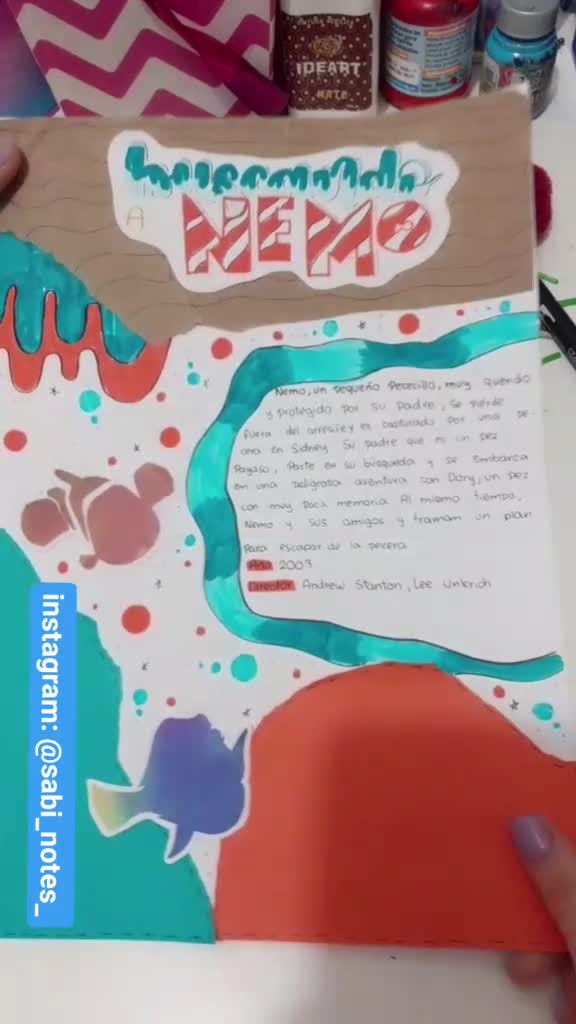 IDEART
MATE
Buscando
A
NEMO
Nemo, un pequeño pececillo, muy querido
y protegido por su padre, se pierde
fuera del arrecife y es capturado por una pe-
cera en Sidney. Su padre que es un pez
Payaso, Parte en su busqueda y se embarca
en una peligrosa aventura con Dory, un pez
con muy poca memoria. Al mismo tiempo,
Nemo y sus amigos y traman un plan
para escapar de la pecera
Año 2003
Director Andrew Stanton, Lee Unkrich
instagram: @sabi_notes_